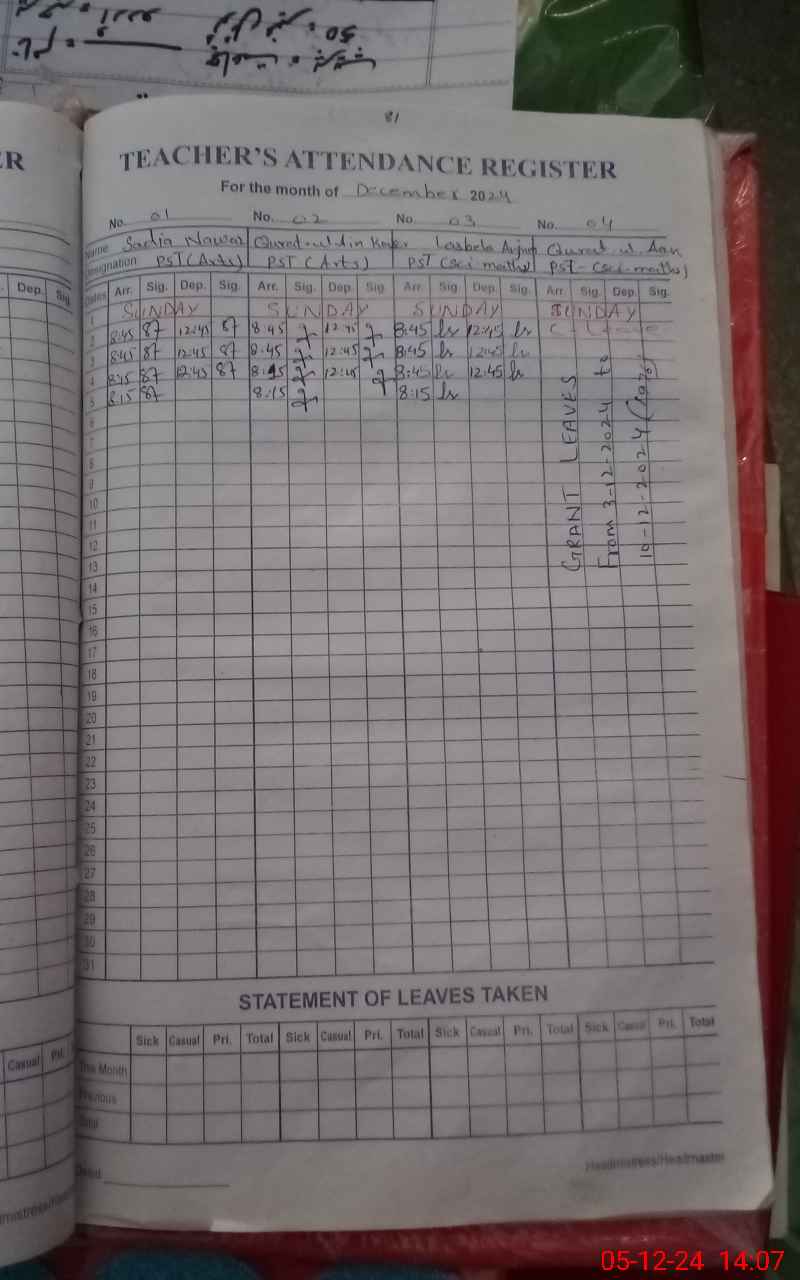 81
TEACHER'S ATTENDANCE REGISTER
For the month of December 2024
No. 01 No. 02 No. 03 No. 04
Name Sadia Nawaz Lasbela
Designation PST (Arts) PST (Arts) PST (sci maths) PST - (sci-maths)
Dates Arr. Sig. Dep. Sig. Arr. Sig. Dep. Sig. Arr. Sig. Dep. Sig. Arr. Sig. Dep. Sig.
1 SUNDAY SUNDAY SUNDAY SUNDAY
2 8:45 87 12:45 87 8:45 12:45 8:45 ls 12:45 ls C Leave
3 8:45 87 12:45 87 8:45 12:45 8:45 ls 12:45 ls
4 8:45 87 12:45 87 8:45 12:45 8:45 ls 12:45 ls
5 8:15 87 8:15 8:15 ls
GRANT LEAVES
From 3-12-2024 to
10-12-2024
6
7
8
9
10
11
12
13
14
15
16
17
18
19
20
21
22
23
24
25
26
27
28
29
30
31
STATEMENT OF LEAVES TAKEN
Sick Casual Pri. Total Sick Casual Pri. Total Sick Casual Pri. Total Sick Casual Pri. Total
This Month
Previous
Total
Headmistress/Headmaster
Dated
ER
Dep. Sig.
Casual Pri.
05-12-24 14:07